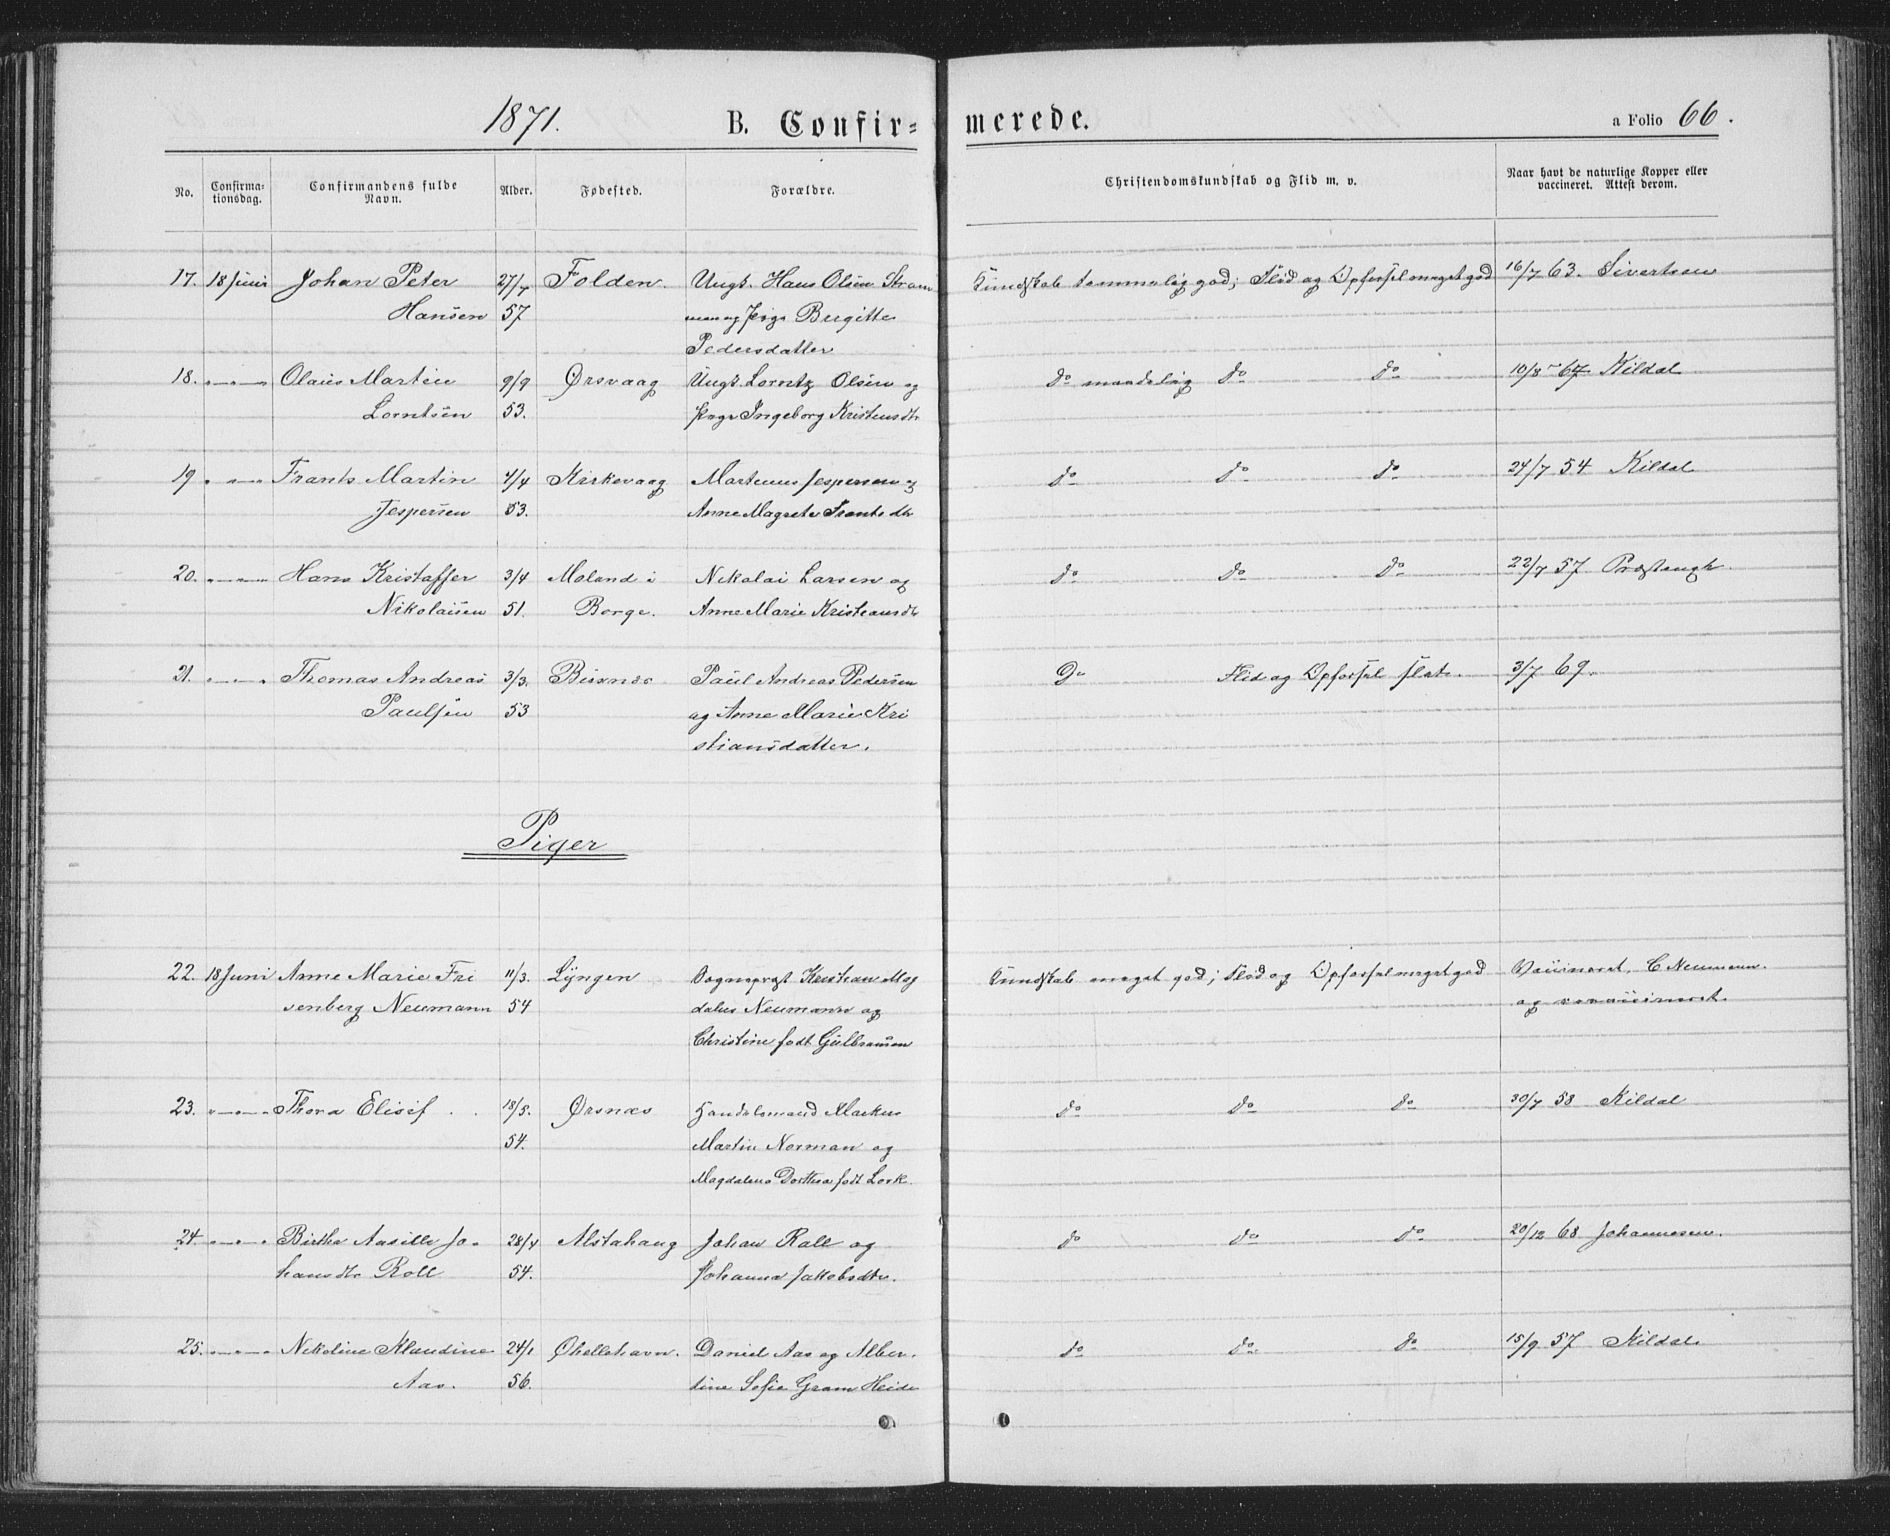 1871. B. Confir= merede. a Folio 66.
No. Confirma= tionsdag. Confirmandens fulde Navn. Alder. Fødested. Forældre. Christendomskundskab og Flid m. v. Naar havt de naturlige Kopper eller vaccineret. Attest derom.
17. 18 Juni Johan Peter 27/7 Folden. Ungk. Hans Olsen Strøm Kundskab temmelig god; Flid og Opførsel meget god 16/7 63. Sivertsen
Hansen 57 men og Pige Birgitte
Pedersdatter
18. " " " Olaus Martin 9/9 Ørsvaag Ungk. Lorntz Olsen og do maadelig do do 10/8 67 Kildal
Lorntsen 53. Pige Ingeborg Kristensdtr
19 " " " Frants Martin 4/4 Kirkevaag Martinus Jespersen og do do do 24/7 54 Kildal
Jespersen 53. Anne Magrete Frantsdtr
20. " " " Hans Kristaffer 3/4 Moland i Nikolai Larsen og do do do 22/7 57
Nikolaisen 51. Borge. Anne Marie Kristiansdtr
21. " " " Thomas Andreas 3/3. Paul Andreas Pedersen Do Flid og Opførsel slet. 3/7 69.
Paulsen 53 og Anne Marie Kri
stiansdatter.
Piger
22. 18 Juni Anne Marie Fri 11/3. Lyngen Sognepræst Kristian Mag Kundskab meget god; Flid og Opførsel meget god Vaccineret. C Neumann.
senberg Neumann 54 dalus Neumann og og revaccineret.
Christine født Gulbransen
23. " " " Thora Elisif 18/5. Ørsnæs Handelsmand Markus do do do 30/7 58 Kildal
54. Martin Norman og
Magdalena Dorthea født Lork.
24. " " " Birthe Aasille Jo- 28/4 Alstahaug Johan Roll og do do do 20/12 68 Johannesen.
hansdtr Roll 54. Johanna Jakobsdtr.
25. " " " Nikoline Klaudine 24/1 Daniel Aas og Alber- do do do 15/9 57 Kildal
Aas. 56. tine Sofie Gram Heide